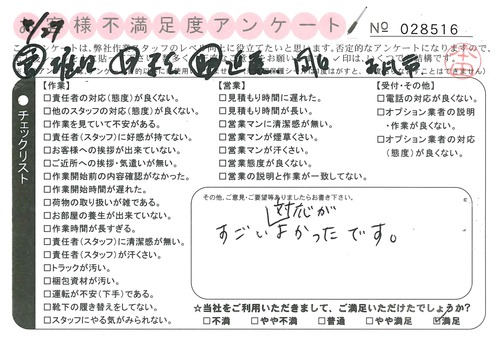 5/27
お客様不満足度アンケート
№ 028516
チェックリスト
【作業】
□責任者の対応(態度)が良くない。
□他のスタッフの対応(態度)が良くない。
□作業を見ていて不安がある。
□責任者(スタッフ)に好感が持てない。
□お客様への挨拶が出来ていない。
□ご近所への挨拶・気遣いが無い。
□作業開始前の内容確認がなかった。
□作業開始時間が遅れた。
□荷物の取り扱いが雑である。
□お部屋の養生が出来ていない。
□作業時間が長すぎる。
□責任者(スタッフ)に清潔感が無い。
□責任者(スタッフ)が汗くさい。
□トラックが汚い。
□梱包資材が汚い。
□運転が不安(下手)である。
□靴下の履き替えをしてない。
□スタッフにやる気がみられない。
【営業】
□見積もり時間に遅れた。
□見積もり時間が長い。
□営業マンに清潔感が無い。
□営業マンが煙草くさい。
□営業マンが汗くさい。
□営業態度が良くない。
□営業の説明と作業が一致してない。
【受付・その他】
□電話の対応が良くない。
□オプション業者の説明
・作業が良くない。
□オプション業者の対応
(態度)が良くない。
その他、ご意見・ご要望等ありましたらお書き下さい。
対応が
すごいよかったです。
☆当社をご利用いただきまして、ご満足いただけたでしょうか?
□不満 □やや不満 □普通 □やや満足 ☑満足